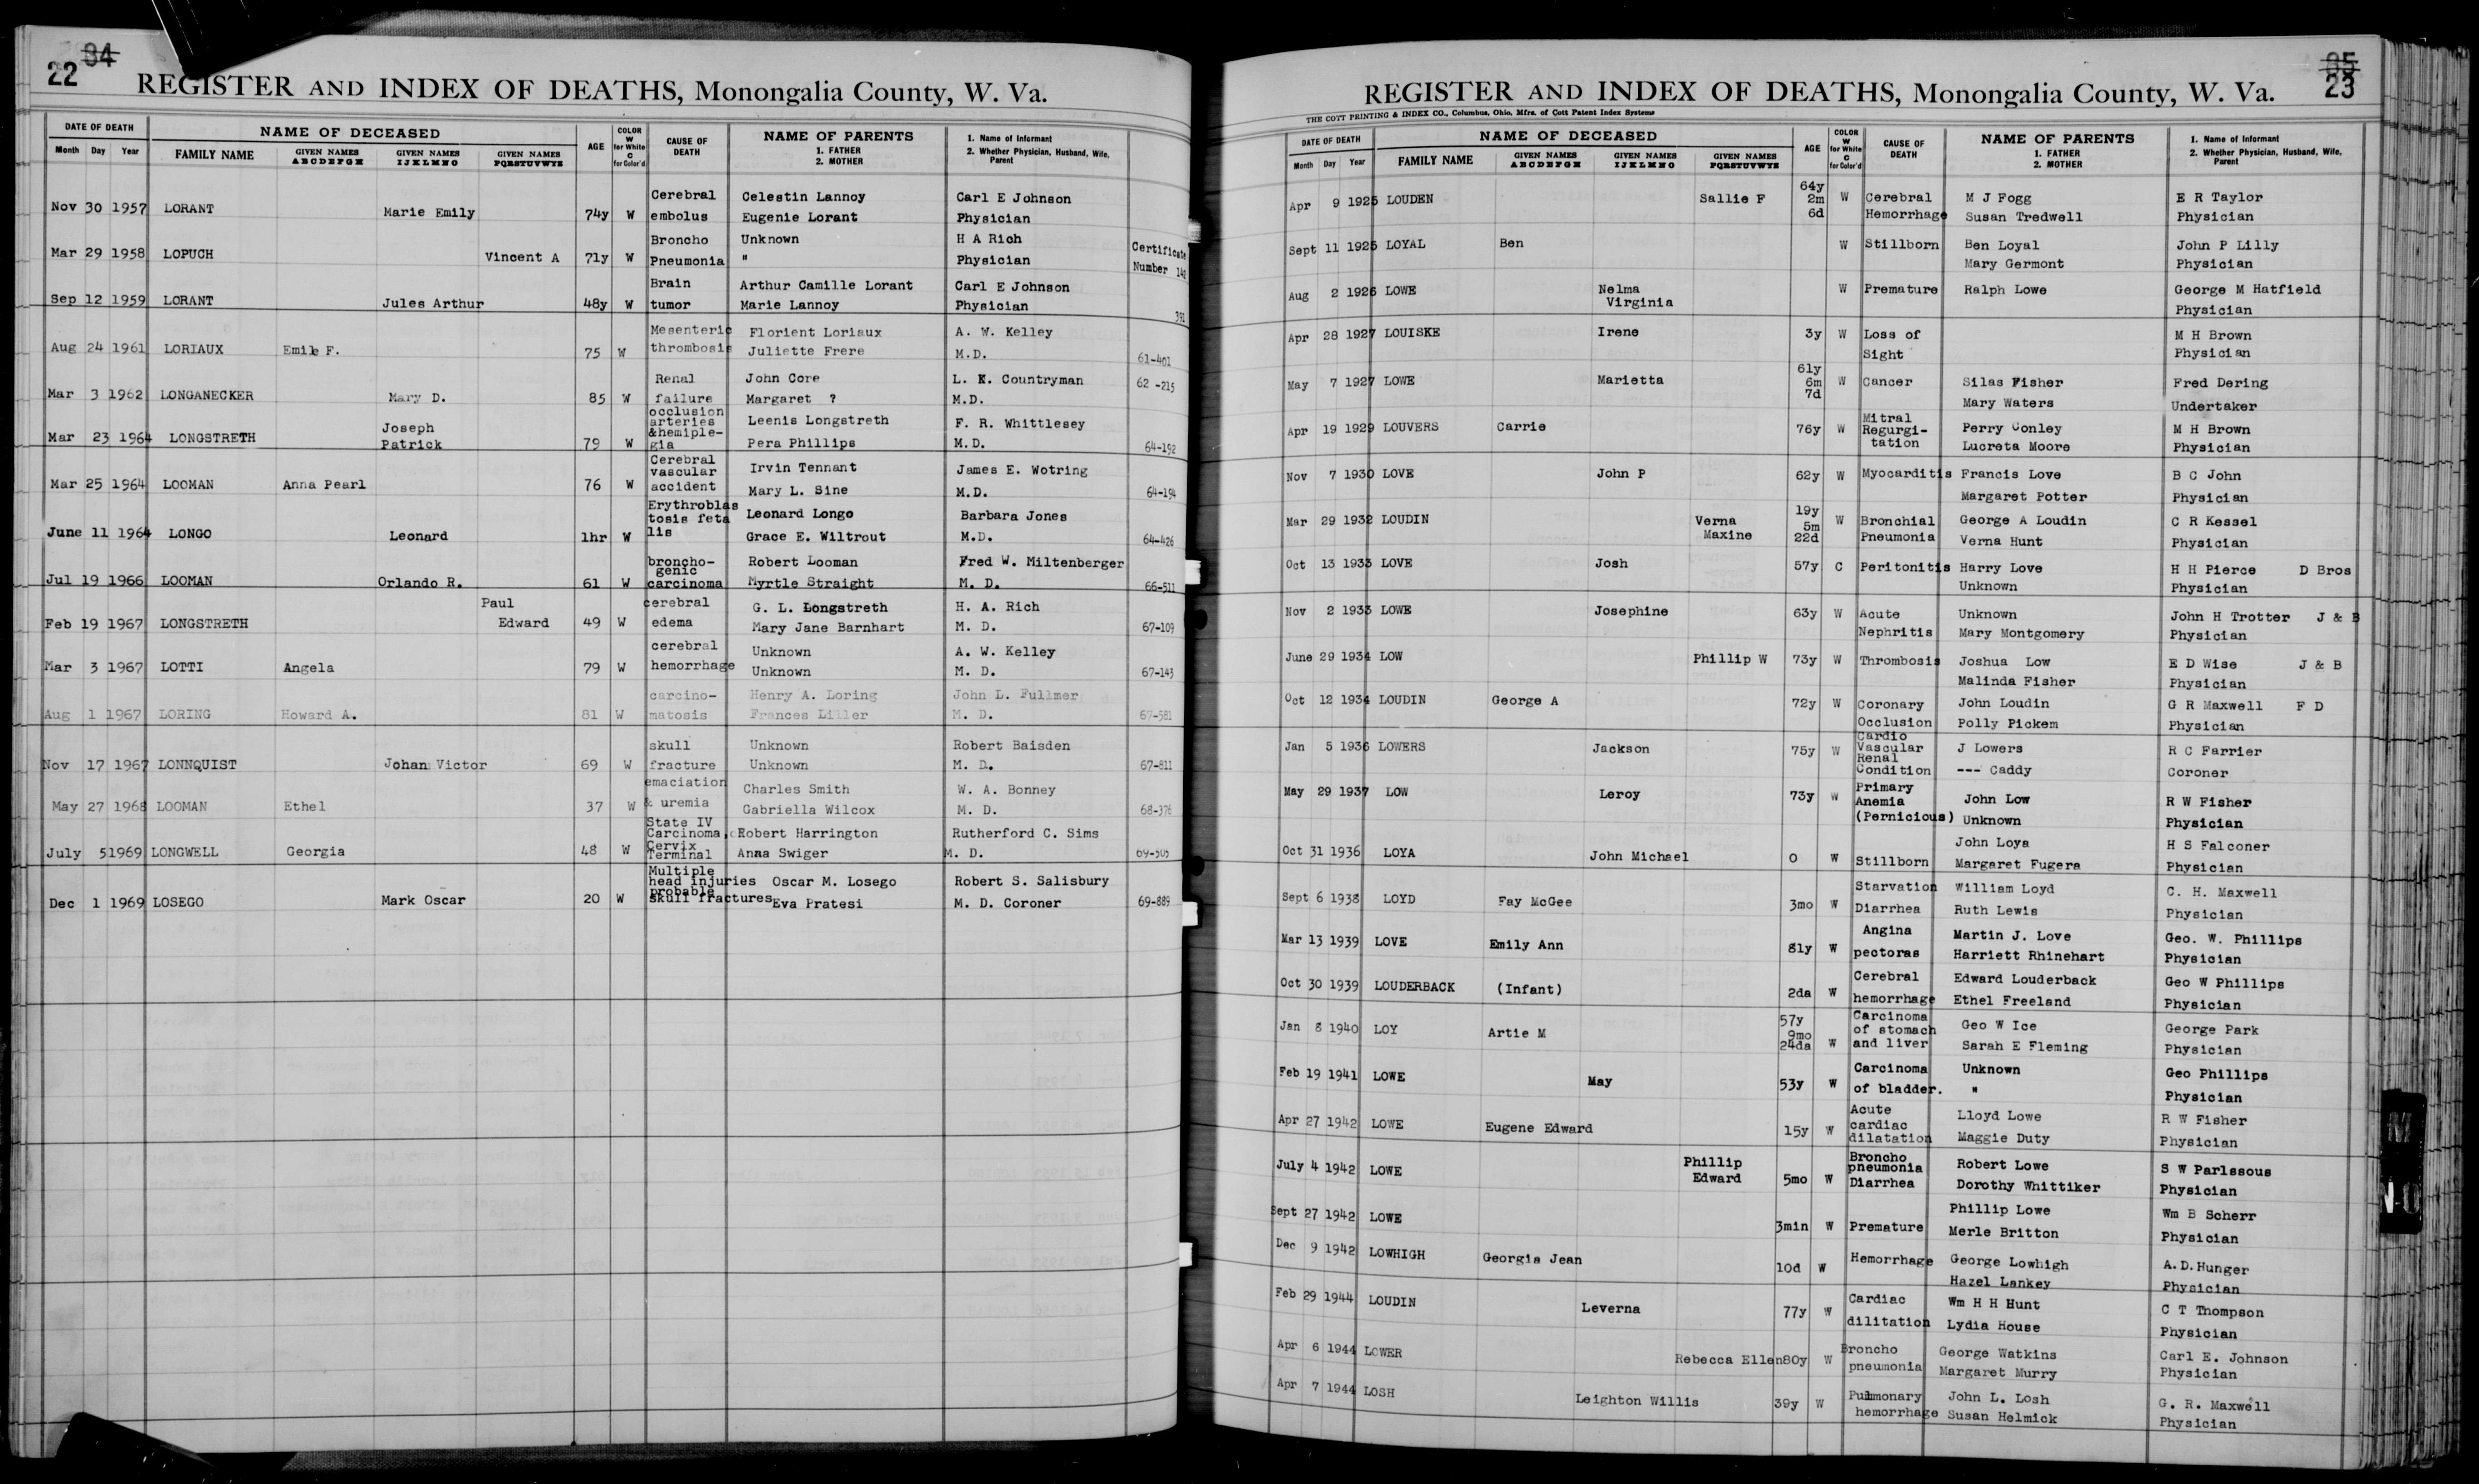 22 34
REGISTER AND INDEX OF DEATHS, Monongalia County, W. Va.
DATE OF DEATH NAME OF DECEASED AGE COLOR W for White C for Color'd CAUSE OF DEATH NAME OF PARENTS 1. FATHER 2. MOTHER 1. Name of Informant 2. Whether Physician, Husband, Wife, Parent
Month Day Year FAMILY NAME GIVEN NAMES ABCDEFGH GIVEN NAMES IJKLMNO GIVEN NAMES PQRSTUVWYZ
Cerebral Celestin Lannoy Carl E Johnson
Nov 30 1957 LORANT Marie Emily 74y W embolus Eugenie Lorant Physician
Broncho Unknown H A Rich Certificate
Mar 29 1958 LOPUCH Vincent A 71y W Pneumonia " Physician Number 142
Brain Arthur Camille Lorant Carl E Johnson
Sep 12 1959 LORANT Jules Arthur 48y W tumor Marie Lannoy Physician 391
Mesenteric Florient Loriaux A. W. Kelley
Aug 24 1961 LORIAUX Emile F. 75 W thrombosis Juliette Frere M.D. 61-401
Renal John Core L. K. Countryman 62 -215
Mar 3 1962 LONGANECKER Mary D. 85 W failure Margaret ? M.D.
occlusion
arteries Leenis Longstreth F. R. Whittlesey
Joseph &hemiple-
Mar 23 1964 LONGSTRETH Patrick 79 W gia Pera Phillips M.D. 64-192
Cerebral
vascular Irvin Tennant James E. Wotring
Mar 25 1964 LOOMAN Anna Pearl 76 W accident Mary L. Sine M.D. 64-194
Erythroblas
tosis feta Leonard Longo Barbara Jones
June 11 1964 LONGO Leonard 1hr W lis Grace E. Wiltrout M.D. 64-426
broncho- Robert Looman Fred W. Miltenberger
genic
Jul 19 1966 LOOMAN Orlando R. 61 W carcinoma Myrtle Straight M. D. 66-511
Paul cerebral G. L. Longstreth H. A. Rich
Feb 19 1967 LONGSTRETH Edward 49 W edema Mary Jane Barnhart M. D. 67-109
cerebral Unknown A. W. Kelley
Mar 3 1967 LOTTI Angela 79 W hemorrhage Unknown M. D. 67-143
carcino- Henry A. Loring John L. Fullmer
Aug 1 1967 LORING Howard A. 81 W matosis Frances Liller M. D. 67-581
skull Unknown Robert Baisden
Nov 17 1967 LONNQUIST Johan Victor 69 W fracture Unknown M. D. 67-811
emaciation Charles Smith W. A. Bonney
May 27 1968 LOOMAN Ethel 37 W & uremia Gabriella Wilcox M. D. 68-376
State IV
Carcinoma,c Robert Harrington Rutherford C. Sims
Cervix
July 5 1969 LONGWELL Georgia 48 W Terminal Anna Swiger M. D. 69-505
Multiple
head injuries Oscar M. Losego Robert S. Salisbury
probable
Dec 1 1969 LOSEGO Mark Oscar 20 W skull fractures Eva Pratesi M. D. Coroner 69-889
35 23
REGISTER AND INDEX OF DEATHS, Monongalia County, W. Va.
THE COTT PRINTING & INDEX CO., Columbus, Ohio, Mfrs. of Cott Patent Index Systems
DATE OF DEATH NAME OF DECEASED AGE COLOR W for White C for Color'd CAUSE OF DEATH NAME OF PARENTS 1. FATHER 2. MOTHER 1. Name of Informant 2. Whether Physician, Husband, Wife, Parent
Month Day Year FAMILY NAME GIVEN NAMES ABCDEFGH GIVEN NAMES IJKLMNO GIVEN NAMES PQRSTUVWYZ
64y
Apr 9 1925 LOUDEN Sallie F 2m W Cerebral M J Fogg E R Taylor
6d Hemorrhage Susan Tredwell Physician
Sept 11 1925 LOYAL Ben W Stillborn Ben Loyal John P Lilly
Mary Germont Physician
Aug 2 1926 LOWE Nelma W Premature Ralph Lowe George M Hatfield
Virginia Physician
Apr 28 1927 LOUISKE Irene 3y W Loss of M H Brown
Sight Physician
61y
May 7 1927 LOWE Marietta 6m W Cancer Silas Fisher Fred Dering
7d Mary Waters Undertaker
Mitral
Apr 19 1929 LOUVERS Carrie 76y W Regurgi- Perry Conley M H Brown
tation Lucreta Moore Physician
Nov 7 1930 LOVE John P 62y W Myocarditis Francis Love B C John
Margaret Potter Physician
19y
Mar 29 1932 LOUDIN Verna 5m W Bronchial George A Loudin C R Kessel
Maxine 22d Pneumonia Verna Hunt Physician
Oct 13 1933 LOVE Josh 57y C Peritonitis Harry Love H H Pierce D Bros
Unknown Physician
Nov 2 1933 LOWE Josephine 63y W Acute Unknown John H Trotter J & B
Nephritis Mary Montgomery Physician
June 29 1934 LOW Phillip W 73y W Thrombosis Joshua Low E D Wise J & B
Malinda Fisher Physician
Oct 12 1934 LOUDIN George A 72y W Coronary John Loudin G R Maxwell F D
Occlusion Polly Pickem Physician
Cardio
Jan 5 1936 LOWERS Jackson 75y W Vascular J Lowers R C Farrier
Renal
Condition --- Caddy Coroner
Primary
May 29 1937 LOW Leroy 73y W Anemia John Low R W Fisher
(Pernicious) Unknown Physician
John Loya H S Falconer
Oct 31 1936 LOYA John Michael 0 W Stillborn Margaret Fugera Physician
Starvation William Loyd C. H. Maxwell
Sept 6 1938 LOYD Fay McGee 3mo W Diarrhea Ruth Lewis Physician
Angina Martin J. Love Geo. W. Phillips
Mar 13 1939 LOVE Emily Ann 81y W pectoras Harriett Rhinehart Physician
Cerebral Edward Louderback Geo W Phillips
Oct 30 1939 LOUDERBACK (Infant) 2da W hemorrhage Ethel Freeland Physician
57y Carcinoma
Jan 8 1940 LOY Artie M 9mo of stomach Geo W Ice George Park
24da W and liver Sarah E Fleming Physician
Carcinoma Unknown Geo Phillips
Feb 19 1941 LOWE May 53y W of bladder. " Physician
Acute Lloyd Lowe R W Fisher
Apr 27 1942 LOWE Eugene Edward 15y W cardiac
dilatation Maggie Duty Physician
Broncho
July 4 1942 LOWE Phillip pneumonia Robert Lowe S W Parlssous
Edward 5mo W Diarrhea Dorothy Whittiker Physician
Phillip Lowe Wm B Scherr
Sept 27 1942 LOWE 3min W Premature Merle Britton Physician
Dec 9 1942 LOWHIGH Georgia Jean 10d W Hemorrhage George Lowhigh A.D.Hunger
Hazel Lankey Physician
Feb 29 1944 LOUDIN Leverna 77y W Cardiac Wm H H Hunt C T Thompson
dilitation Lydia House Physician
Apr 6 1944 LOWER Rebecca Ellen 80y W Broncho George Watkins Carl E. Johnson
pneumonia Margaret Murry Physician
Apr 7 1944 LOSH Leighton Willis 39y W Pulmonary John L. Losh G. R. Maxwell
hemorrhage Susan Helmick Physician
M
N-O